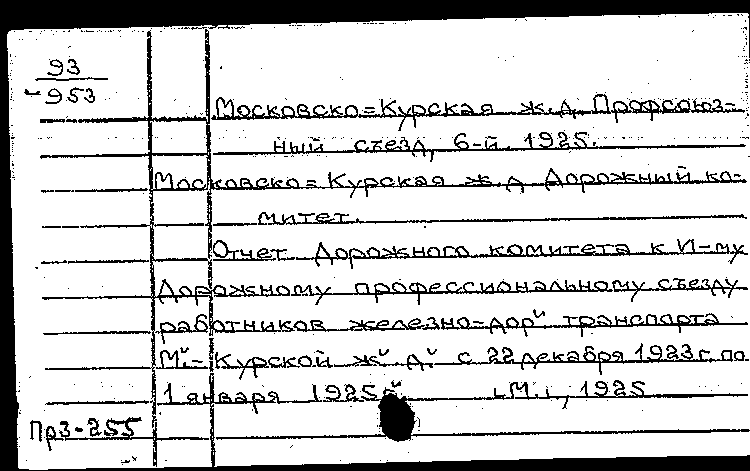 93
953
Московско=Курская ж.д. Профсоюз-
ный съезд, 6-й. 1925.
Московско=Курская ж.д Дорожный ко-
митет.
Отчет Дорожного комитета к VI-му
Дорожному профессиональному съезду
работников железно-дор" транспорта
М".-Курской ж".д." с 22 декабря 1923 г. по
1 января 1925 г. [М.], 1925
Пр3-255